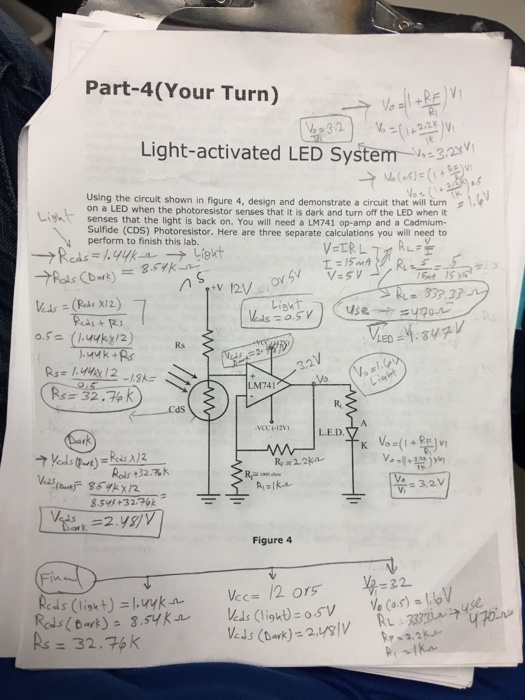 Part-4(Your Turn)
→ Vo=(1+RF/R1)V1
Vo=3.2
Vo=(1+2.2k/1k)V1
Light-activated LED System
Vo=3.2×V1
→ Vo(0.5)=(1+RF/R1)V1
Vo=(1+2.2k/1k)0.5
=1.6V
Using the circuit shown in figure 4, design and demonstrate a circuit that will turn
on a LED when the photoresistor senses that it is dark and turn off the LED when it
senses that the light is back on. You will need a LM741 op-amp and a Cadmium-
Sulfide (CDS) Photoresistor. Here are three separate calculations you will need to
perform to finish this lab.
Light
→ Rcds=1.44kΩ → Light
→ Rcds (Dark) = 8.54k
V=IRL
I=15mA
V=5V
RL=V/I
RL=5/15mA
RL=333.33Ω
use =470Ω
VLED=1.847V
+V 12V or 5V
Light
Vcds=0.5V
Vcds=(Rcds×12)/Rcds+Rs
0.5=(1.44k×12)/1.44k+Rs
Rs=1.44k×12/0.5
Rs=32.76k
Rs
3.2V
Vo
Vo=1.6V
Light
LM741
CdS
-VCC(-12V)
RL
L.E.D.
A
K
RF=2.2kΩ
R1=1kΩ
Vo=(1+RF/R1)V1
Vo=(1+2.2k/1k)V1
Vo/V1=3.2V
Dark
→ Vcds(Dark)=Rcds×12/Rcds+32.76k
Vcds(Dark)=8.54k×12/8.54k+32.76k=
Vcds Dark=2.481V
Figure 4
Final
Rcds (light)=1.44kΩ
Rcds (Dark)=8.54kΩ
Rs=32.76k
Vcc=12 or 5
Vcds (light)=0.5V
Vcds (Dark)=2.481V
Vo (0.5)=1.6V
→ use 470Ω
RF=2.2kΩ
R1=1kΩ